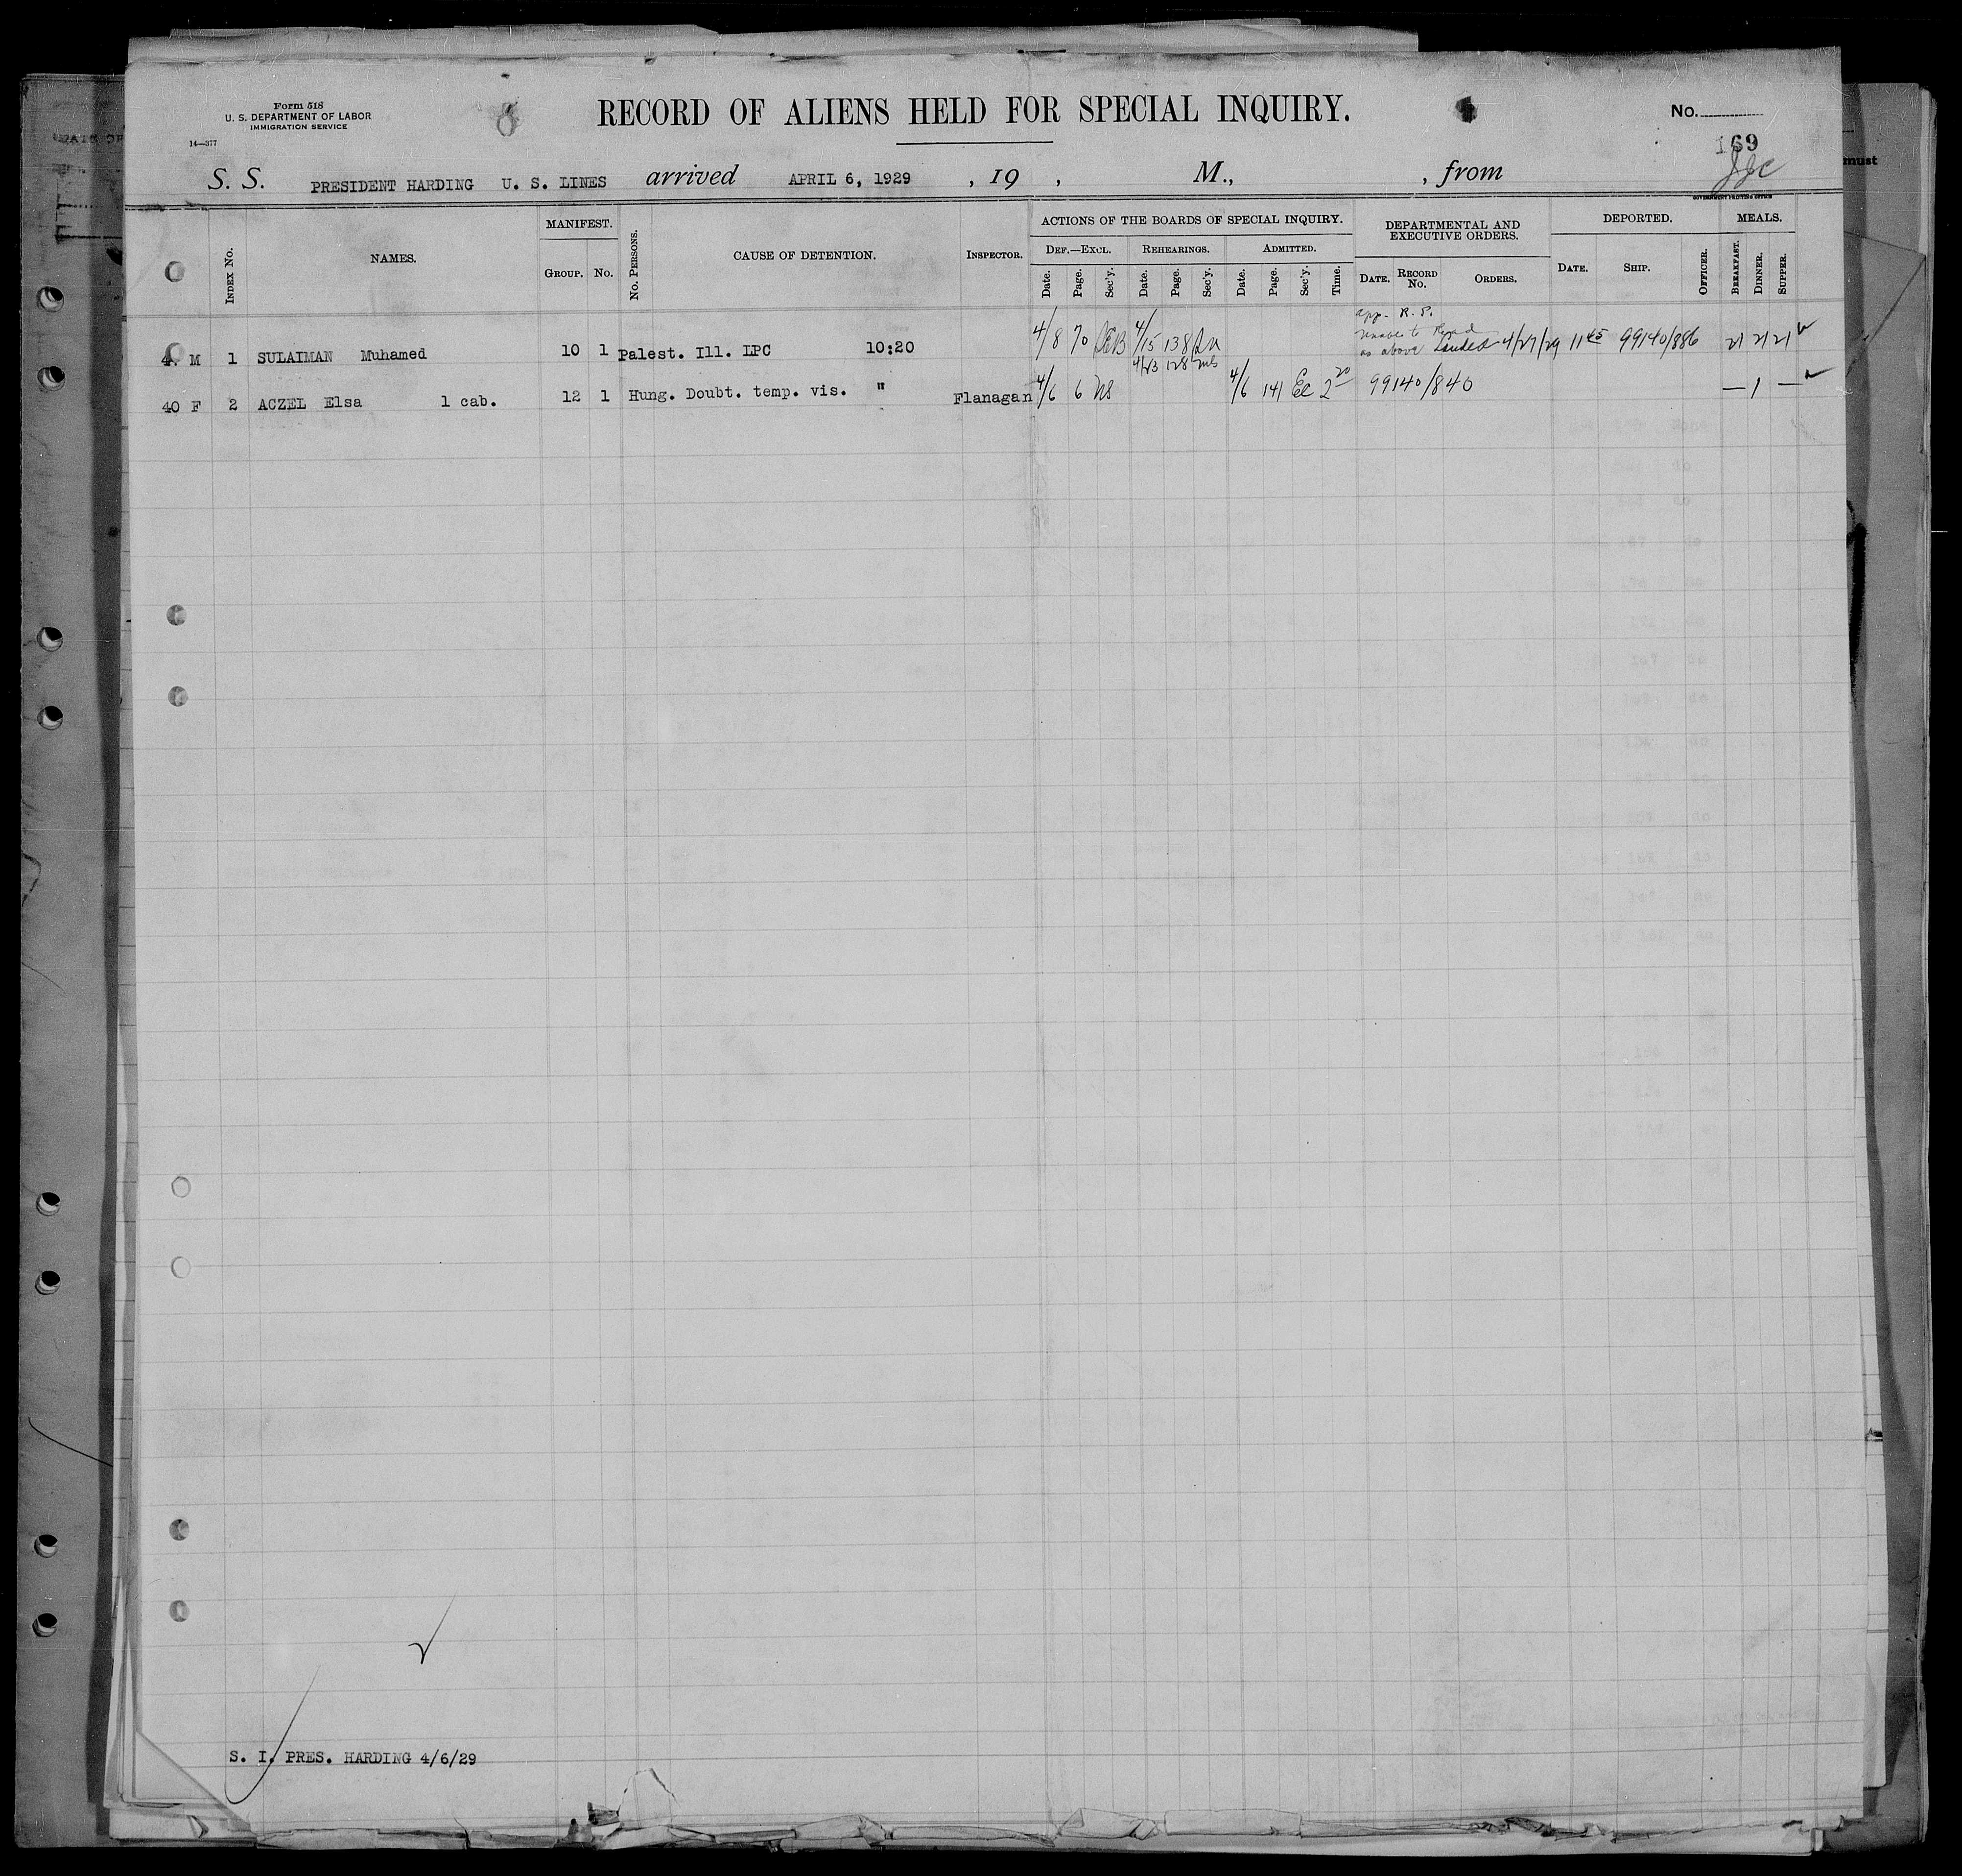 Form 518
U. S. DEPARTMENT OF LABOR
IMMIGRATION SERVICE
14—377
RECORD OF ALIENS HELD FOR SPECIAL INQUIRY.
No.
169
S. S. PRESIDENT HARDING U. S. LINES arrived APRIL 6, 1929 , 19 , M., , from
must
GOVERNMENT PRINTING OFFICE
INDEX NO.
NAMES.
MANIFEST.
GROUP. NO.
NO. PERSONS.
CAUSE OF DETENTION.
INSPECTOR.
ACTIONS OF THE BOARDS OF SPECIAL INQUIRY.
DEF.—EXCL. REHEARINGS. ADMITTED.
Date. Page. Sec'y. Date. Page. Sec'y. Date. Page. Sec'y. Time.
DEPARTMENTAL AND
EXECUTIVE ORDERS.
DATE. RECORD NO. ORDERS.
DEPORTED.
DATE. SHIP. OFFICER.
MEALS.
BREAKFAST. DINNER. SUPPER.
app. R. P.
Unable to Read
4 M 1 SULAIMAN Muhamed 10 1 Palest. Ill. LPC 10:20 4/8 70 4/15 138 as above Landed 4/27/29 11 45 99140/886 21 21 21
4/23 128
40 F 2 ACZEL Elsa 1 cab. 12 1 Hung. Doubt. temp. vis. " Flanagan 4/6 6 NS 4/6 141 Ec 2 20 99140/840 — 1 —
S. I. PRES. HARDING 4/6/29